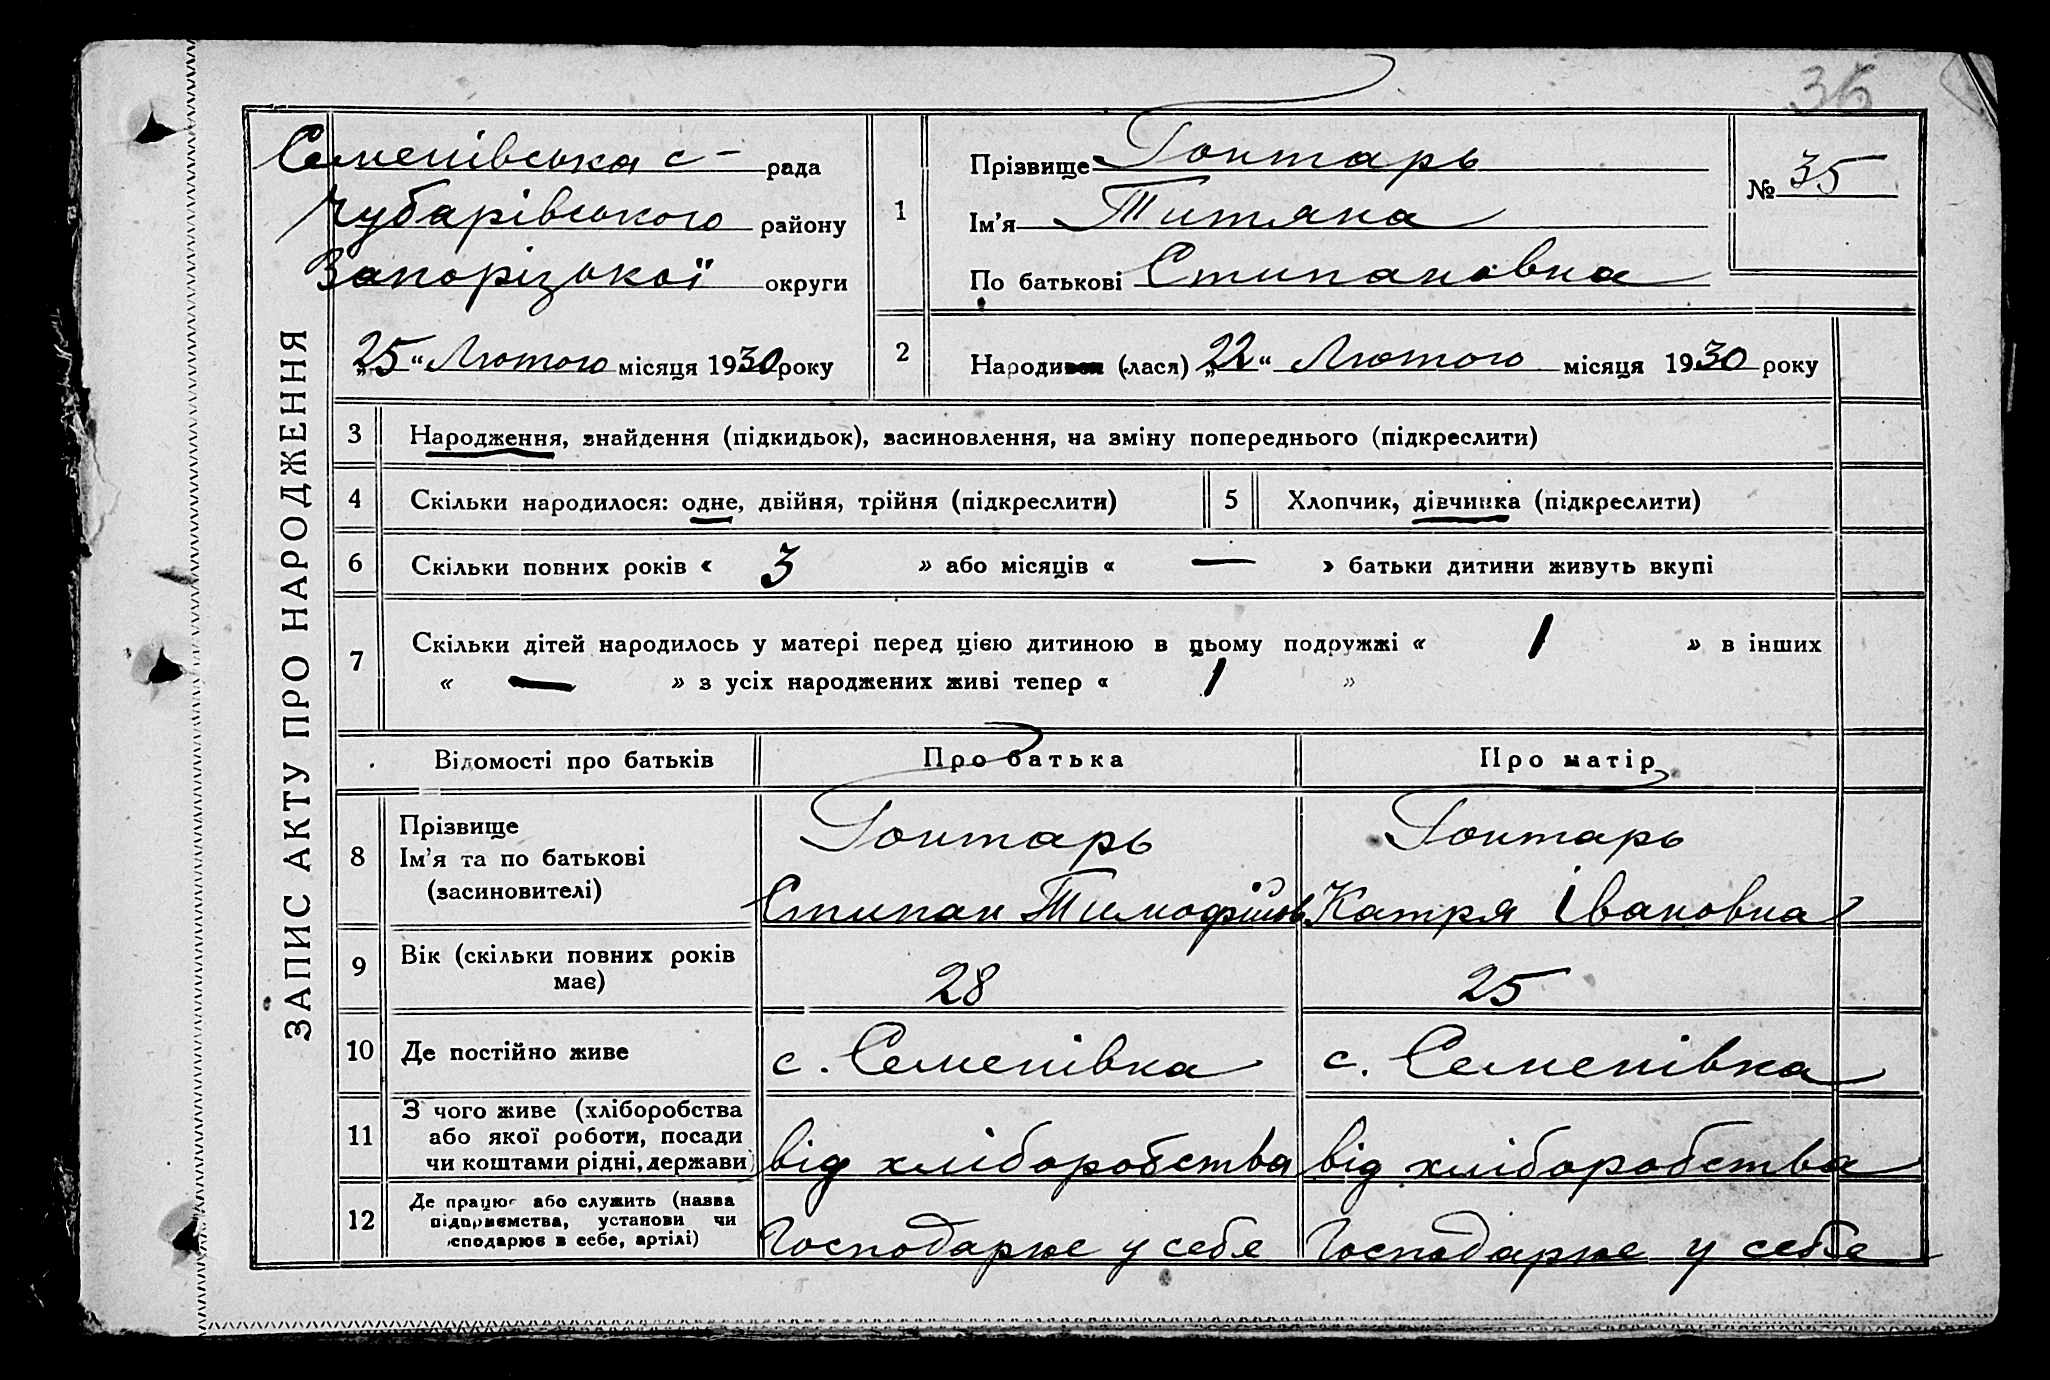 36
ЗАПИС АКТУ ПРО НАРОДЖЕННЯ
Семенівська с – рада
Чубарівського району
Запорізької округи
„25“ Лютого місяця 1930 року
1
Прізвище Гонтарь
Ім'я Титяна
По батькові Стипановна
№ 35
2
Народився (лася) „22“ Лютого місяця 1930 року
3 Народження, знайдення (підкидьок), засиновлення, на зміну попереднього (підкреслити)
4 Скільки народилося: одне, двійня, трійня (підкреслити) 5 Хлопчик, дівчинка (підкреслити)
6 Скільки повних років « 3 » або місяців « — » батьки дитини живуть вкупі
7 Скільки дітей народилось у матері перед цією дитиною в цьому подружжі « 1 » в інших
« — » з усіх народжених живі тепер « 1 »
Відомості про батьків Про батька Про матір
8 Прізвище
Ім'я та по батькові
(засиновителі)
Гонтарь
Стипан Тимофійов
Гонтарь
Катря Івановна
9 Вік (скільки повних років
має)
28 25
10 Де постійно живе с. Семенівка с. Семенівка
11 З чого живе (хліборобства
або якої роботи, посади
чи коштами рідні, держави)
від хліборобства від хліборобства
12 Де працює або служить (назва
підприємства, установи чи
господарює в себе, артілі)
Господарює у себе Господарює у себе